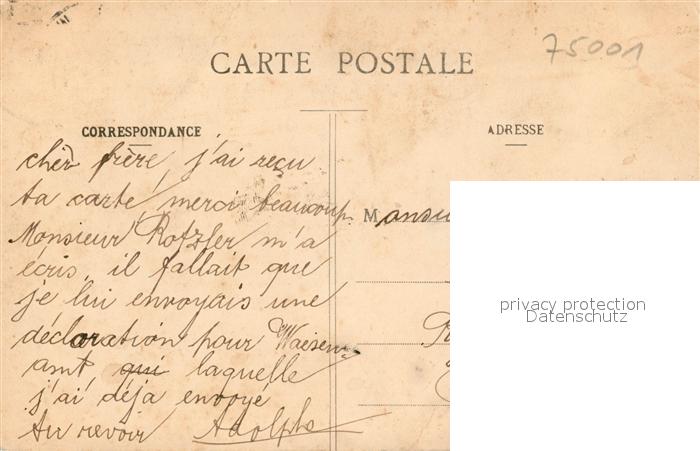 75001
CARTE POSTALE
CORRESPONDANCE
ADRESSE
chèr frère, j'ai reçu
ta carte, merci beaucoup.
Monsieur Rotzler m'a
écris, il fallait que
je lui envoyais une
déclaration pour Waisen-
amt qui laquelle
j'ai déja envoyé
Au revoir Adolphe
M
privacy protection
Datenschutz